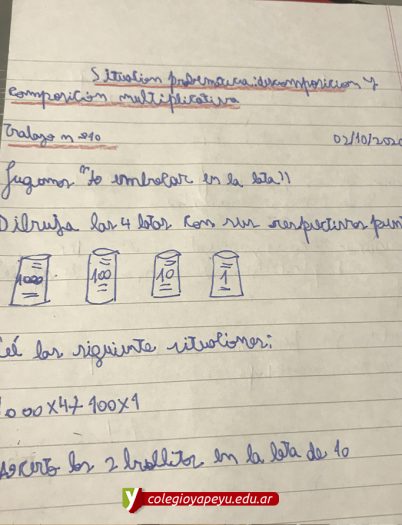 Situacion problematica: descomposicion y
composición multiplicativa
Trabajo n º10 02/10/2020
Jugamos "Yo embolcar en la lata"
Dibruja las 4 latas con sus respectivos pun
1000 100 10 1
Leé las siguiente situaciones:
1000x4+100x1
Acerto los 2 bollitos en la lata de 10
colegioyapeyu.edu.ar